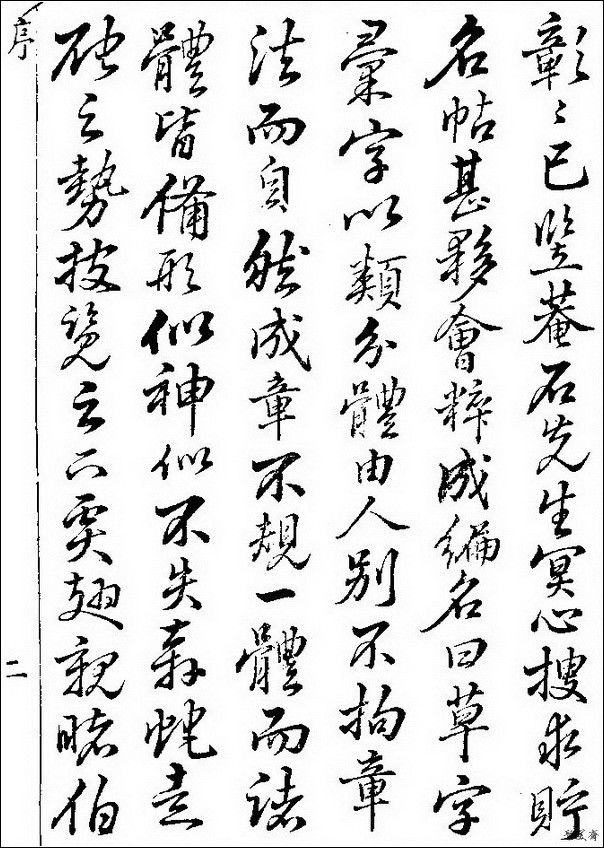 彰〻已竪菴石先生冥心搜求貯
名帖甚夥會粹成編名曰草字
彙字以類分體由人別不拘章
法而自然成章不規一體而諸
體皆備形似神似不失奔蛇走
之勢披覽之下奚翅親睹伯
序
二